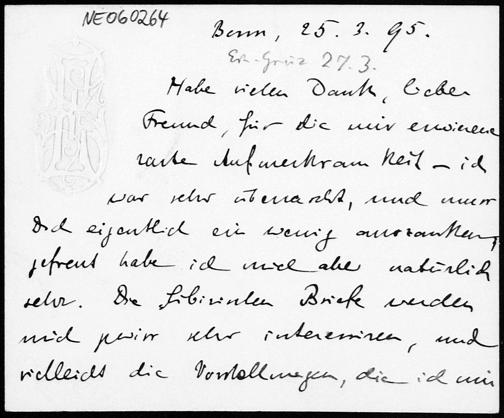 NE060264
Bonn, 25. 3. 95.
27. 3.
Habe vielen Dank, lieber
Freund, für die mir erwiesene
zarte Aufmerksamkeit – ich
war sehr überrascht, und muss
Dich eigentlich ein wenig auszanken,
gefreut habe ich mich aber natürlich
sehr. Die Sibirischen Briefe werden
mich gewiss sehr interessiren, und
vielleicht die Vorstellungen, die ich mir